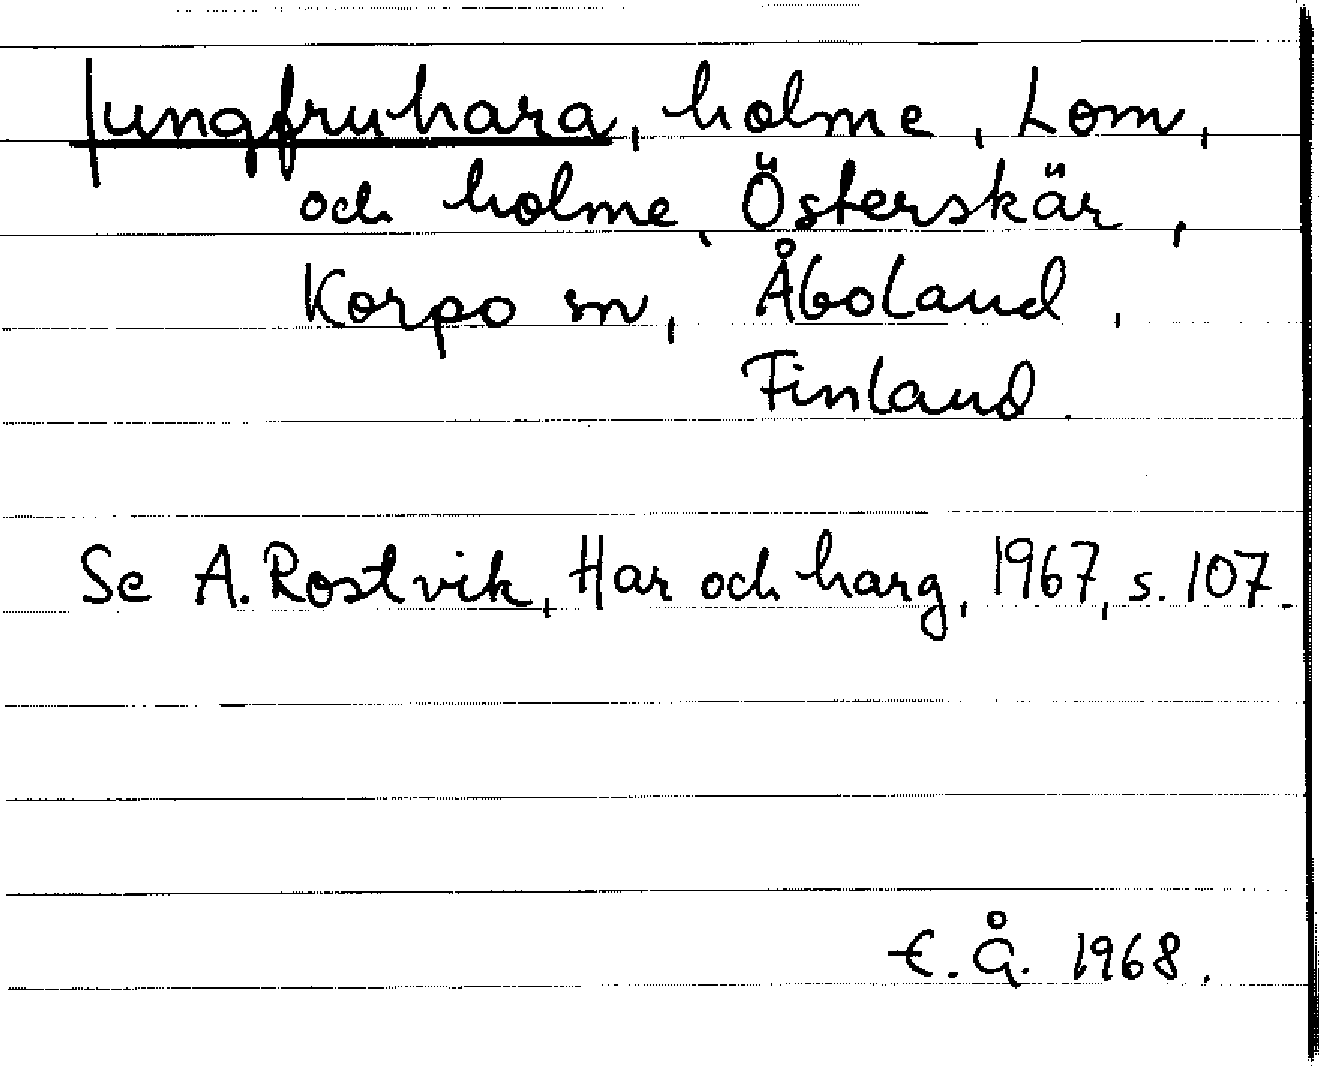 Jungfruhara, holme, Lom,
och holme, Österskär,
Korpo sn, Åboland,
Finland.
Se A. Rostvik, Har och harg, 1967, s. 107.
E. Å. 1968.